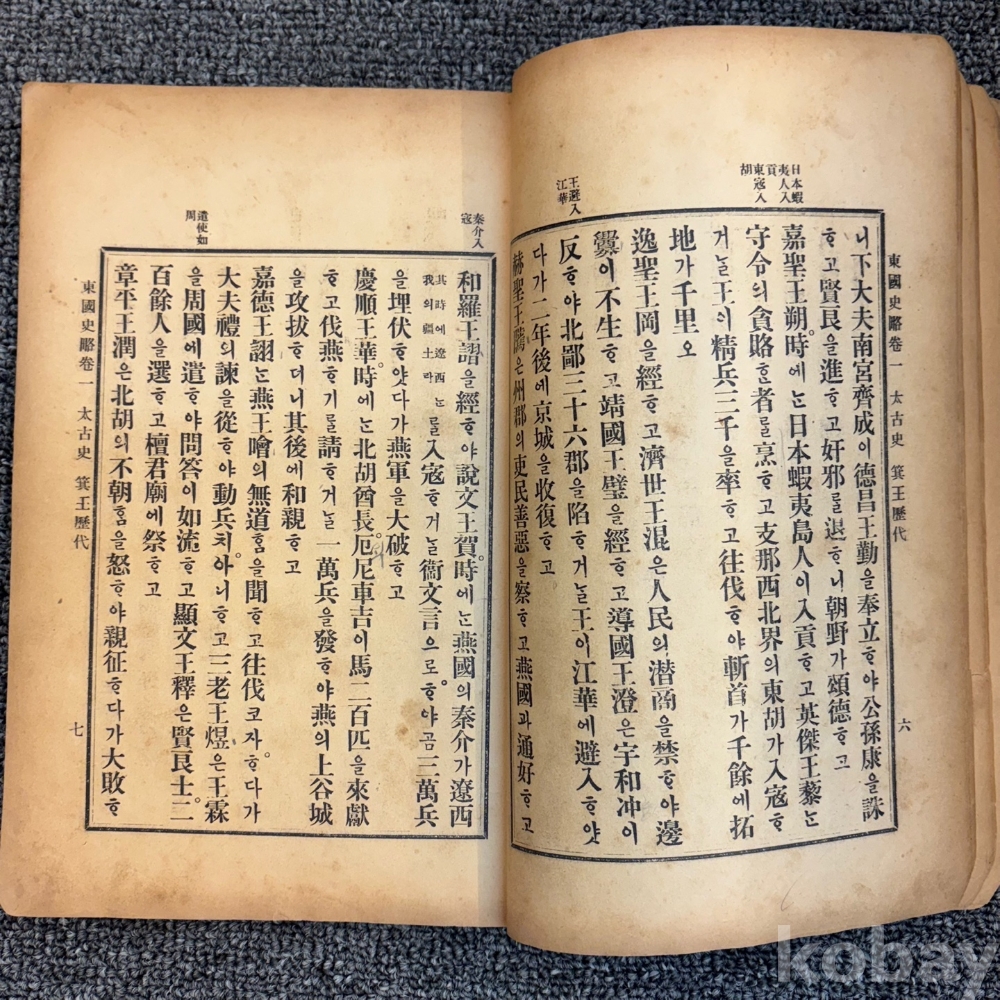 日本蝦
夷人入
貢
東寇入
胡
王避入
江華
東國史略卷一 太古史 箕王歷代
六
니下大夫南宮齊成이德昌王勤을奉立ᄒᆞ야公孫康을誅
ᄒᆞ고賢良을進ᄒᆞ고奸邪를退ᄒᆞ니朝野가頌德ᄒᆞ고
嘉聖王朔。時에ᄂᆞᆫ日本蝦夷島人이入貢ᄒᆞ고英傑王藜ᄂᆞᆫ
守令의貪賂ᄒᆞᆫ者를烹ᄒᆞ고支那西北界의東胡가入寇ᄒᆞ
거ᄂᆞᆯ王의精兵三千을率ᄒᆞ고往伐ᄒᆞ야斬首가千餘에拓
地가千里오
逸聖王岡을經ᄒᆞ고濟世王混은人民의潜商을禁ᄒᆞ야邊
釁이不生ᄒᆞ고靖國王璧을經ᄒᆞ고導國王澄은宇和冲이
反ᄒᆞ야北鄙三十六郡을陷ᄒᆞ거ᄂᆞᆯ王이江華에避入ᄒᆞ얏
다가二年後에京城을收復ᄒᆞ고
赫聖王隲은州郡의吏民善惡을察ᄒᆞ고燕國과通好ᄒᆞ고
秦介入
寇
遣使如
周
和羅王謂을經ᄒᆞ야說文王賀。時에ᄂᆞᆫ燕國의秦介가遼西
其時에遼西ᄂᆞᆫ
我의疆土라
를入寇ᄒᆞ거ᄂᆞᆯ衞文言으로ᄒᆞ야곰三萬兵
을埋伏ᄒᆞ얏다가燕軍을大破ᄒᆞ고
慶順王華。時에ᄂᆞᆫ北胡酋長厄尼車吉이馬二百匹을來獻
ᄒᆞ고伐燕ᄒᆞ기를請ᄒᆞ거ᄂᆞᆯ一萬兵을發ᄒᆞ야燕의上谷城
을攻拔ᄒᆞ더니其後에和親ᄒᆞ고
嘉德王詡ᄂᆞᆫ燕王噲의無道ᄒᆞᆷ을聞ᄒᆞ고往伐코자。ᄒᆞ다가
大夫禮의諫을從ᄒᆞ야動兵치。아니ᄒᆞ고三老王煜은王霖
을周國에遣ᄒᆞ야問答이如流ᄒᆞ고顯文王釋은賢良士。二
百餘人을選ᄒᆞ고檀君廟에祭ᄒᆞ고
章平王潤은北胡의不朝ᄒᆞᆷ을怒ᄒᆞ야親征ᄒᆞ다가大敗ᄒᆞ
東國史略卷一 太古史 箕王歷代
七
kobay